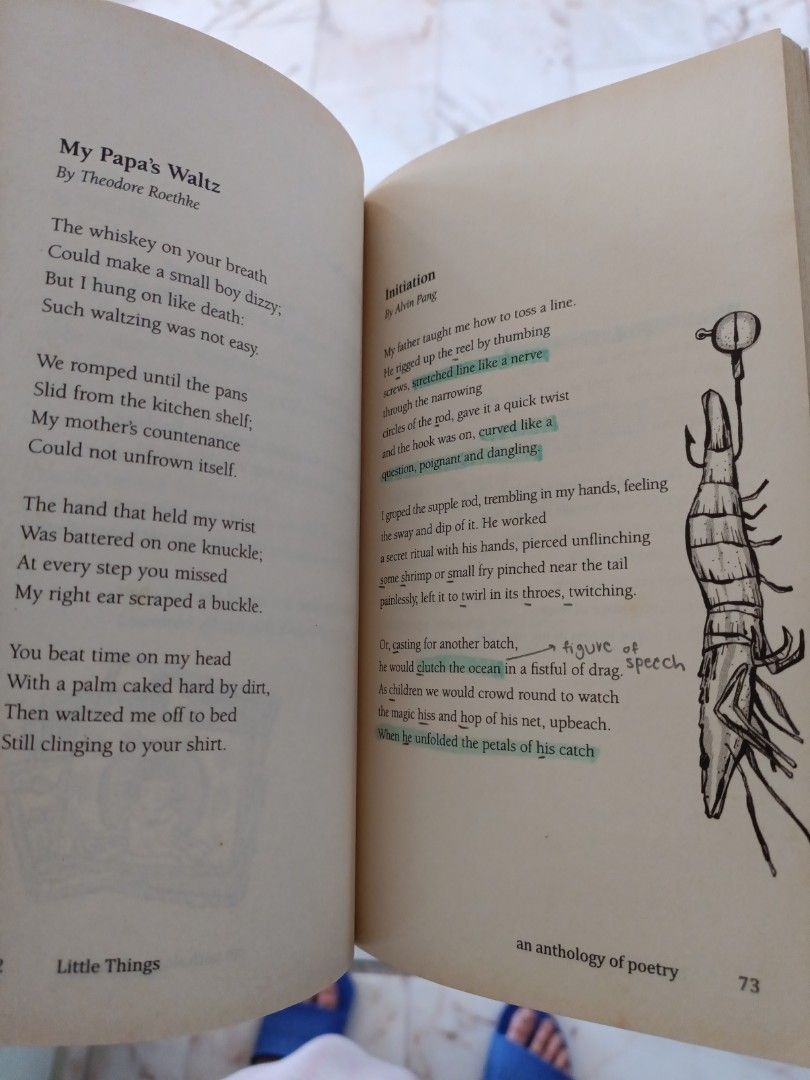 My Papa's Waltz
By Theodore Roethke
The whiskey on your breath
Could make a small boy dizzy;
But I hung on like death:
Such waltzing was not easy.
We romped until the pans
Slid from the kitchen shelf;
My mother's countenance
Could not unfrown itself.
The hand that held my wrist
Was battered on one knuckle;
At every step you missed
My right ear scraped a buckle.
You beat time on my head
With a palm caked hard by dirt,
Then waltzed me off to bed
Still clinging to your shirt.
Little Things
Initiation
By Alvin Pang
My father taught me how to toss a line.
He rigged up the reel by thumbing
screws, stretched line like a nerve
through the narrowing
circles of the rod, gave it a quick twist
and the hook was on, curved like a
question, poignant and dangling.
I groped the supple rod, trembling in my hands, feeling
the sway and dip of it. He worked
a secret ritual with his hands, pierced unflinching
some shrimp or small fry pinched near the tail
painlessly, left it to twirl in its throes, twitching.
Or, casting for another batch,
he would clutch the ocean in a fistful of drag.
figure of
speech
As children we would crowd round to watch
the magic hiss and hop of his net, upbeach.
When he unfolded the petals of his catch
an anthology of poetry
73